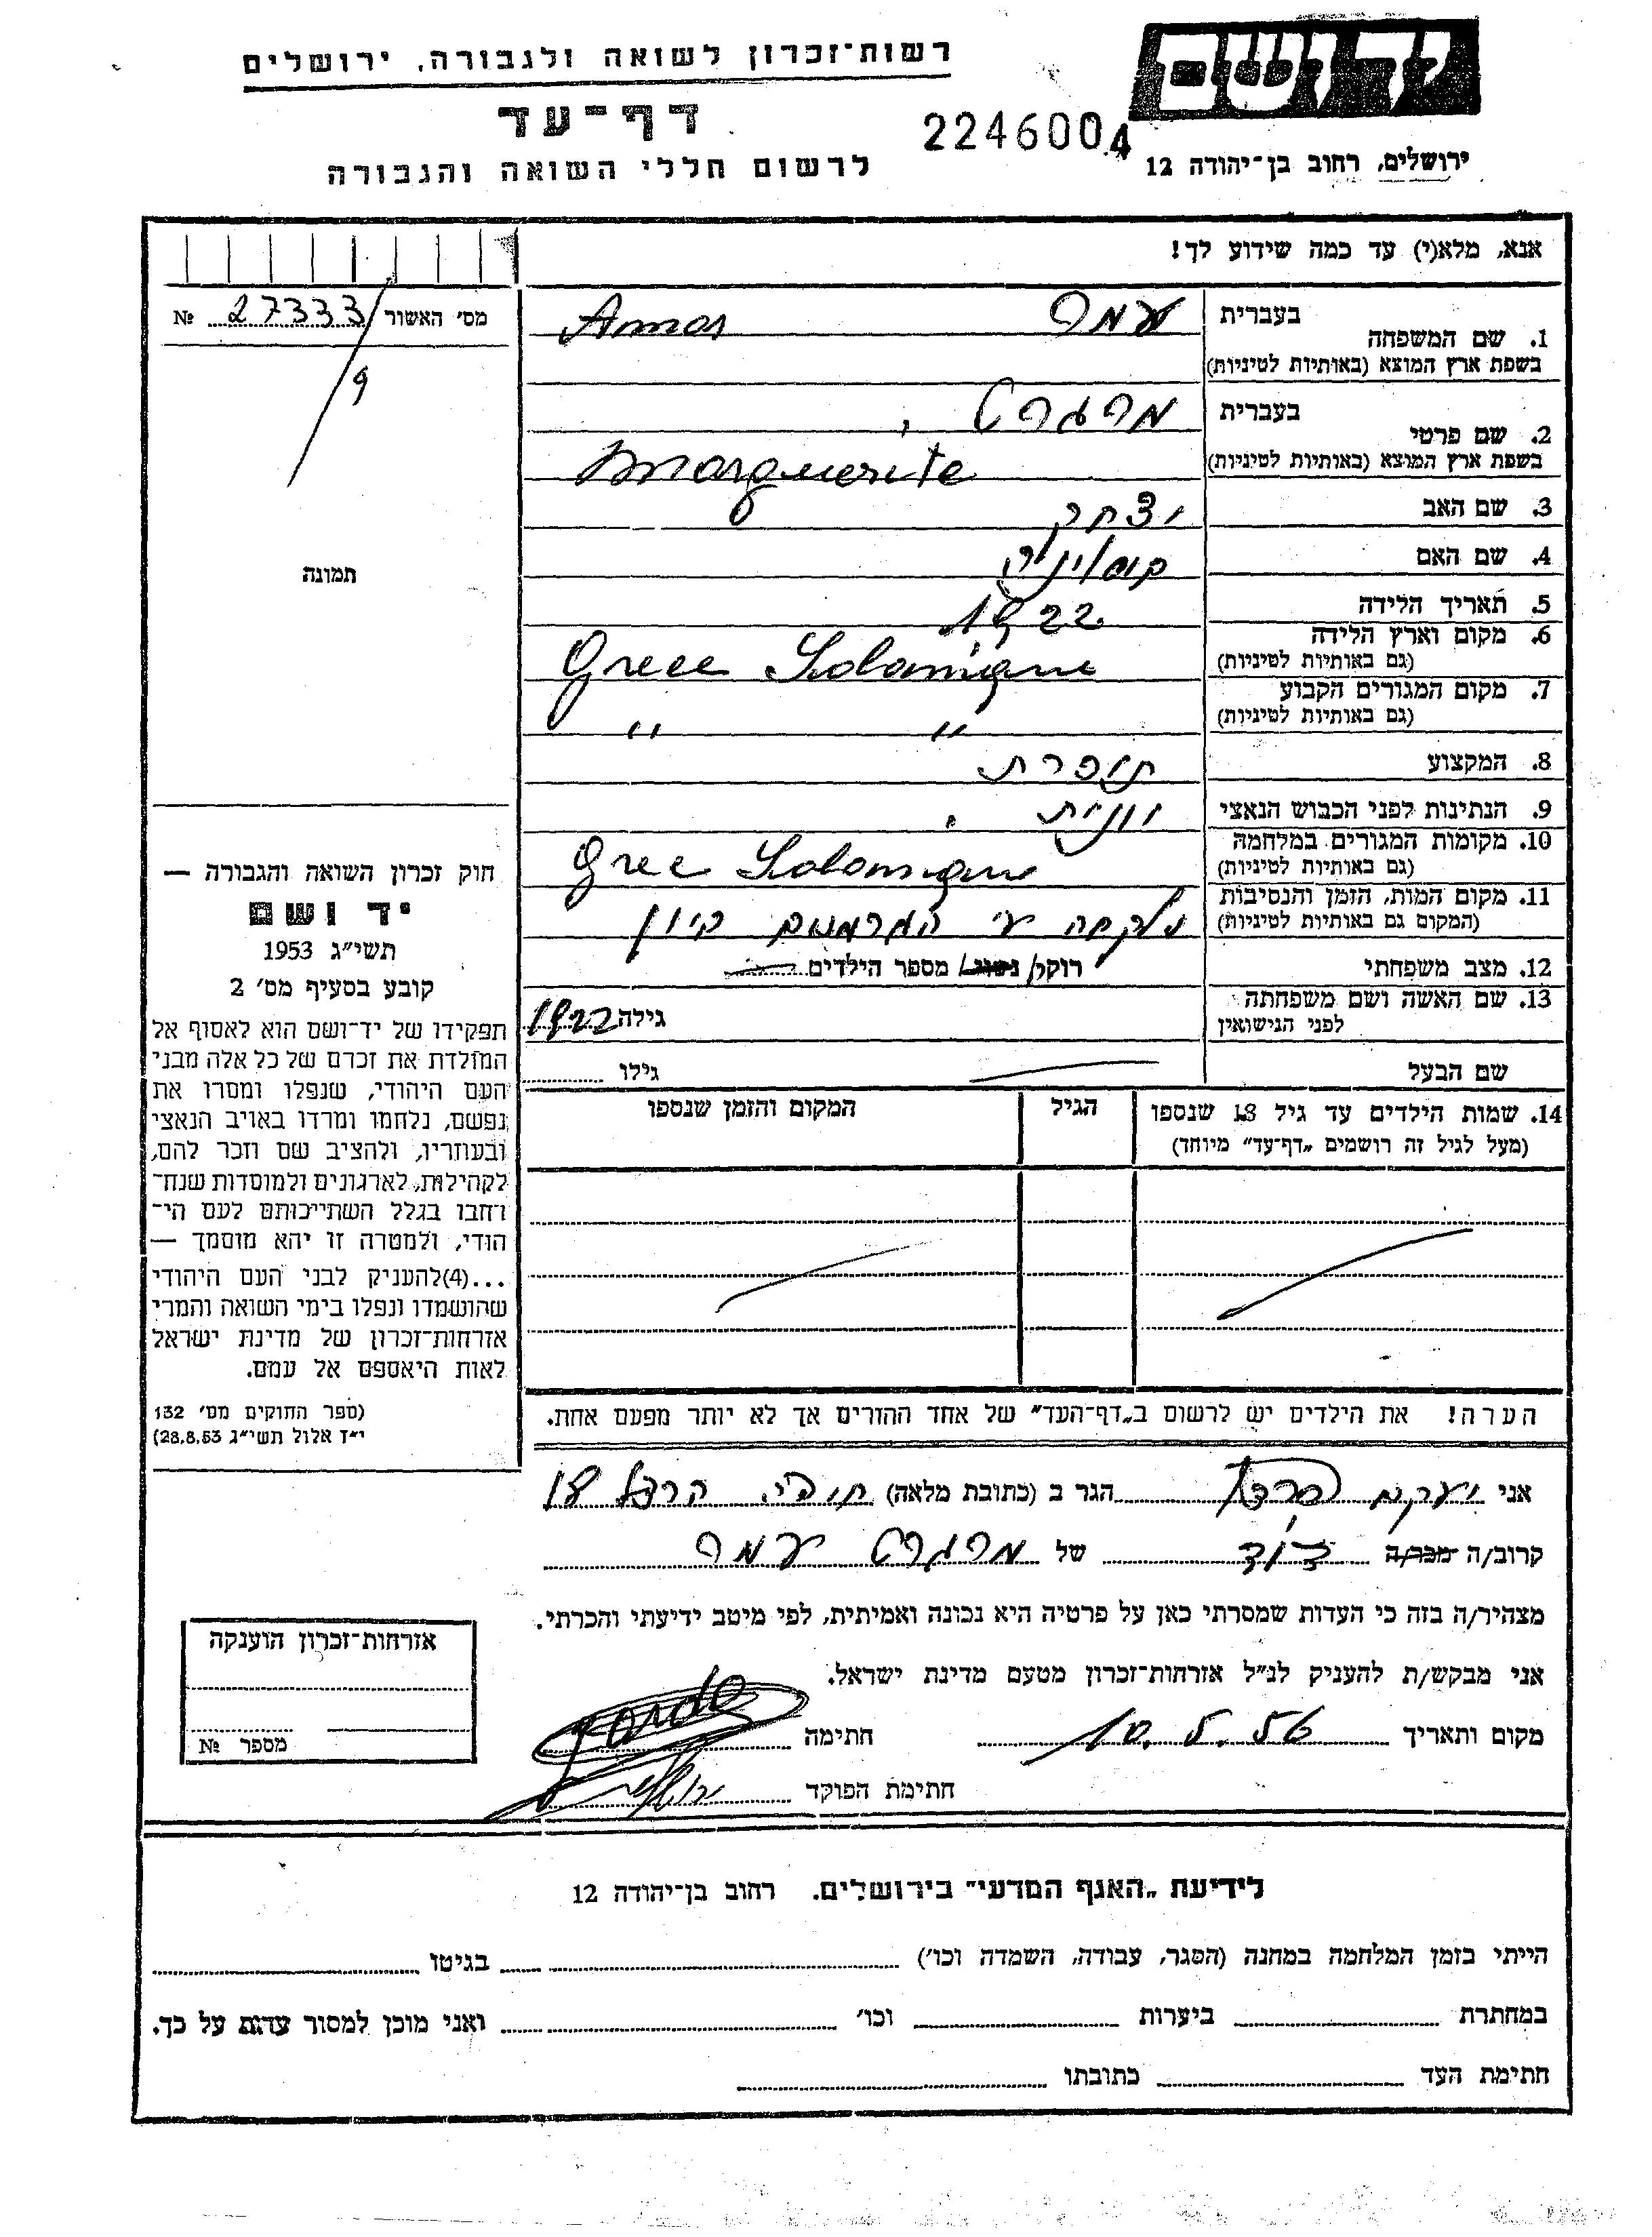 יד ושם
רשות־זכרון לשואה ולגבורה, ירושלים
דף־עד
2246004
ירושלים, רחוב בן־יהודה 12
לרשום חללי השואה והגבורה
אנא, מלא(י) עד כמה שידוע לך!
מס׳ האשור 27333 №
9
תמונה
1. שם המשפחה
בעברית עמר Amar
בשפת ארץ המוצא (באותיות לטיניות)
2. שם פרטי
בעברית מרגרט
בשפת ארץ המוצא (באותיות לטיניות) Marguerite
3. שם האב יצחק
4. שם האם
5. תאריך הלידה 1922
6. מקום וארץ הלידה
(גם באותיות לטיניות) Grece
7. מקום המגורים הקבוע
(גם באותיות לטיניות) " "
8. המקצוע תופרת
9. הנתינות לפני הכבוש הנאצי יוונית
10. מקומות המגורים במלחמה
(גם באותיות לטיניות) Grece
11. מקום המות, הזמן והנסיבות
(המקום גם באותיות לטיניות) נלקחה ע״י הגרמנים
12. מצב משפחתי רוק/ נשוי/ מספר הילדים
13. שם האשה ושם משפחתה
לפני הנישואין גילה 1922
שם הבעל גילו
14. שמות הילדים עד גיל 18 שנספו
(מעל לגיל זה רושמים „דף־עד״ מיוחד)
הגיל
המקום והזמן שנספו
חוק זכרון השואה והגבורה —
יד ושם
תשי״ג 1953
קובע בסעיף מס׳ 2
תפקידו של יד־ושם הוא לאסוף אל
המולדת את זכרם של כל אלה מבני
העם היהודי, שנפלו ומסרו את
נפשם, נלחמו ומרדו באויב הנאצי
ובעוזריו, ולהציב שם וזכר להם,
לקהילות, לארגונים ולמוסדות שנח־
רחבו בגלל השתייכותם לעם הי־
הודי, ולמטרה זו יהא מוסמך —
...(4)להעניק לבני העם היהודי
שהושמדו ונפלו בימי השואה והמרי
אזרחות־זכרון של מדינת ישראל
לאות היאספם אל עמם.
(ספר החוקים מס׳ 132
י״ז אלול תשי״ג 28.8.53)
הערה! את הילדים יש לרשום ב„דף־העד״ של אחד ההורים אך לא יותר מפעם אחת.
אני יעקב הגר ב (כתובת מלאה)
קרוב/ה מכר/ה דוד של מרגרט עמר
מצהיר/ה בזה כי העדות שמסרתי כאן על פרטיה היא נכונה ואמיתית, לפי מיטב ידיעתי והכרתי.
אני מבקש/ת להעניק לנ״ל אזרחות־זכרון מטעם מדינת ישראל.
מקום ותאריך 10.5.56 חתימה
חתימת הפוקד
אזרחות־זכרון הוענקה
מספר №
לידיעת „האגף המדעי״ בירושלים. רחוב בן־יהודה 12
הייתי בזמן המלחמה במחנה (הסגר, עבודה, השמדה וכו׳) בגיטו
במחתרת ביערות וכו׳ ואני מוכן למסור עדות על כך.
חתימת העד כתובתו